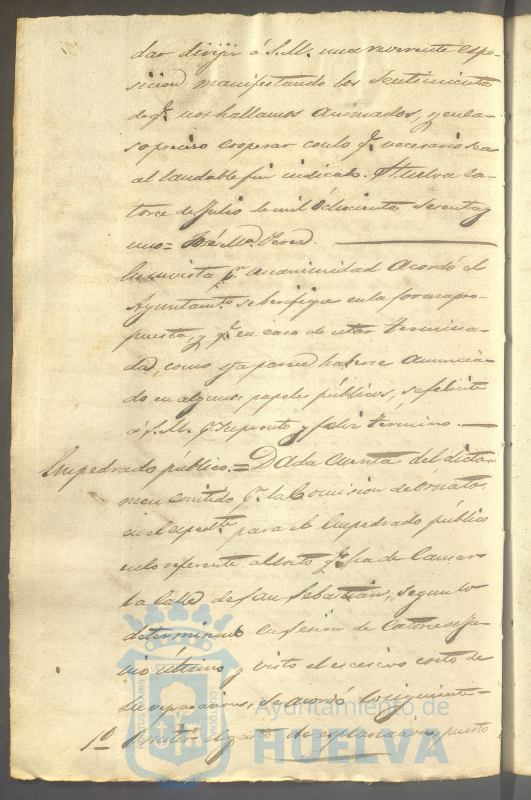 dar dirijir á S.M. una reverente espo-
sicion manifestando los sentimientos
de qe. nos hallamos animados, y en ca-
so preciso cooperar con lo qe. necesario sea
al laudable fin indicado. Huelva ca-
torce de Julio de mil ochocientos sesenta y
uno = José Ma. Perez.
En su vista pr. unanimidad acordó el
Ayuntamto. se berifique en la forma pro-
puesta, y qe. en caso de estar termina-
da, como ya parece haberse anuncia-
do en algunos papeles públicos, se felicite
á S.M. pr. su pronto y feliz término.
Empedrado público. = Dada cuenta del dicta-
men emitido pr. la Comision de Ornato
en el espedte. para el Empedrado público
en lo referente al
la Calle de San Sebastian, segun lo
determinado en sesion de catorce de Ju-
nio último y visto el escesivo costo de
su reparacion, se acordó lo siguiente =
1º
puesto
Ayuntamiento de
HUELVA